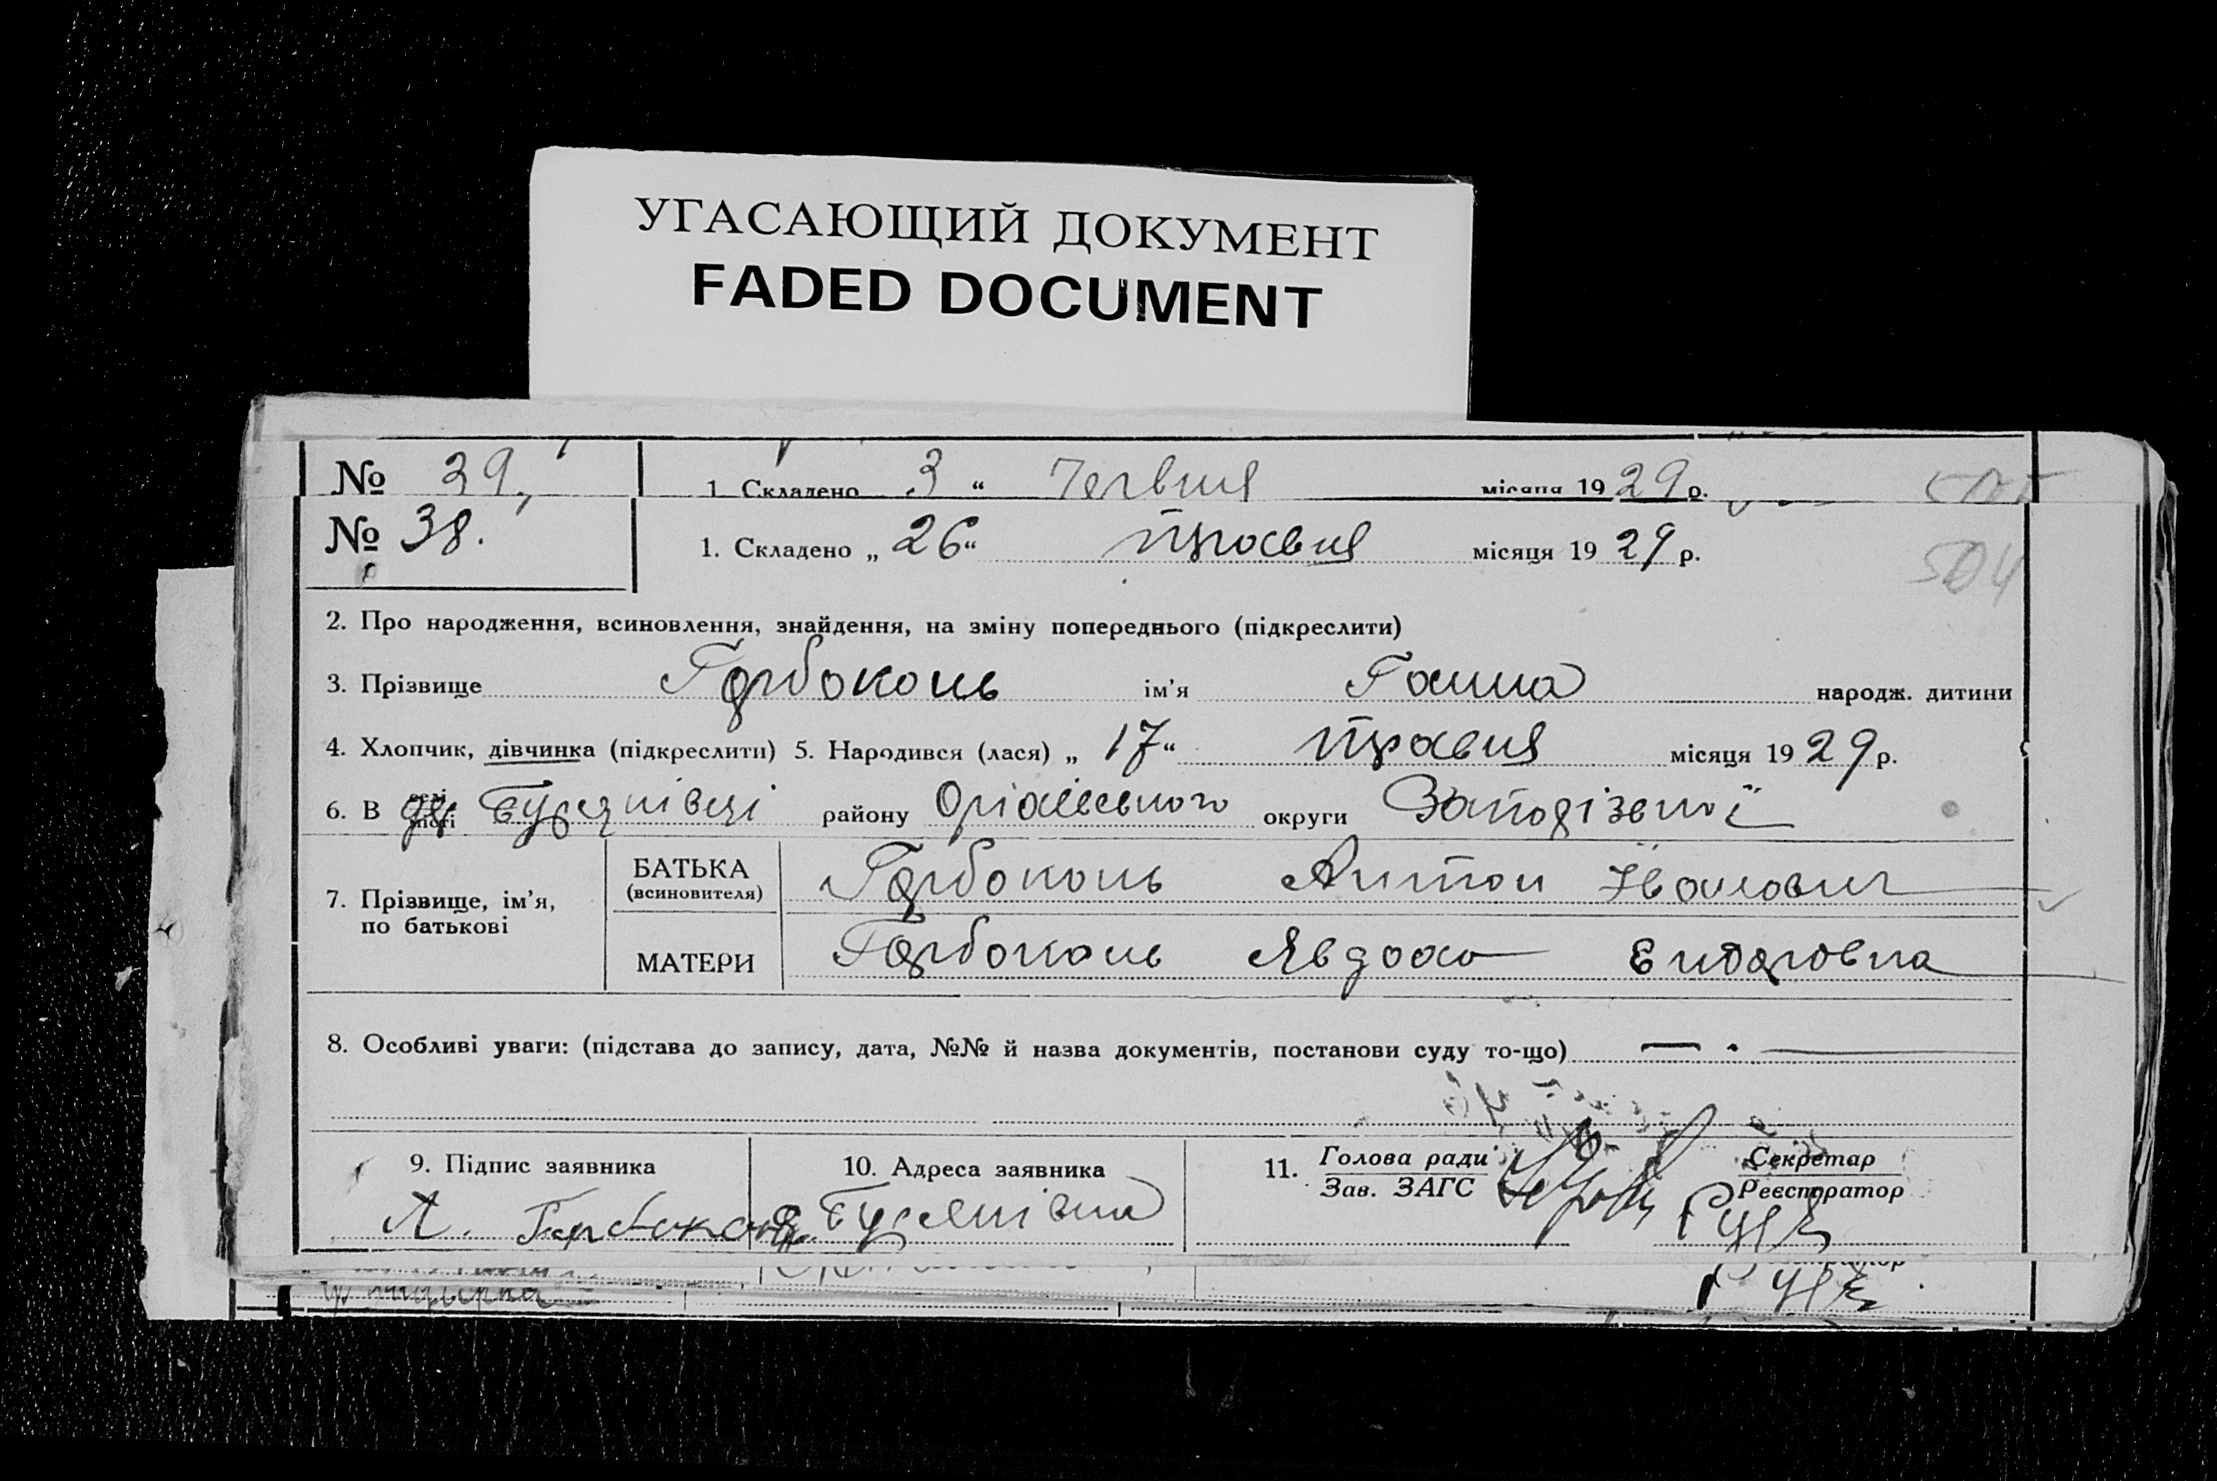 УГАСАЮЩИЙ ДОКУМЕНТ
FADED DOCUMENT
№ 39, 1. Складено 3 “ Червня місяця 1929 р. 505
№ 38. 1. Складено „ 26 “ Травня місяця 1929 р.
504
2. Про народження, всиновлення, знайдення, на зміну попереднього (підкреслити)
3. Прізвище Горбоконь ім’я Ганна народж. дитини
4. Хлопчик, дівчинка (підкреслити) 5. Народився (лася) „ 17 “ Травня місяця 1929 р.
6. В селі місті району Оріхівського округи Запорізької
7. Прізвище, ім’я, по батькові
БАТЬКА (всиновителя) Горбоконь Антон Іванович
МАТЕРИ Горбоконь Явдоха
8. Особливі уваги: (підстава до запису, дата, №№ й назва документів, постанови суду то-що) —
9. Підпис заявника 10. Адреса заявника 11. Голова ради Зав. ЗАГС Секретар Реєстратор
А. Горбоконь